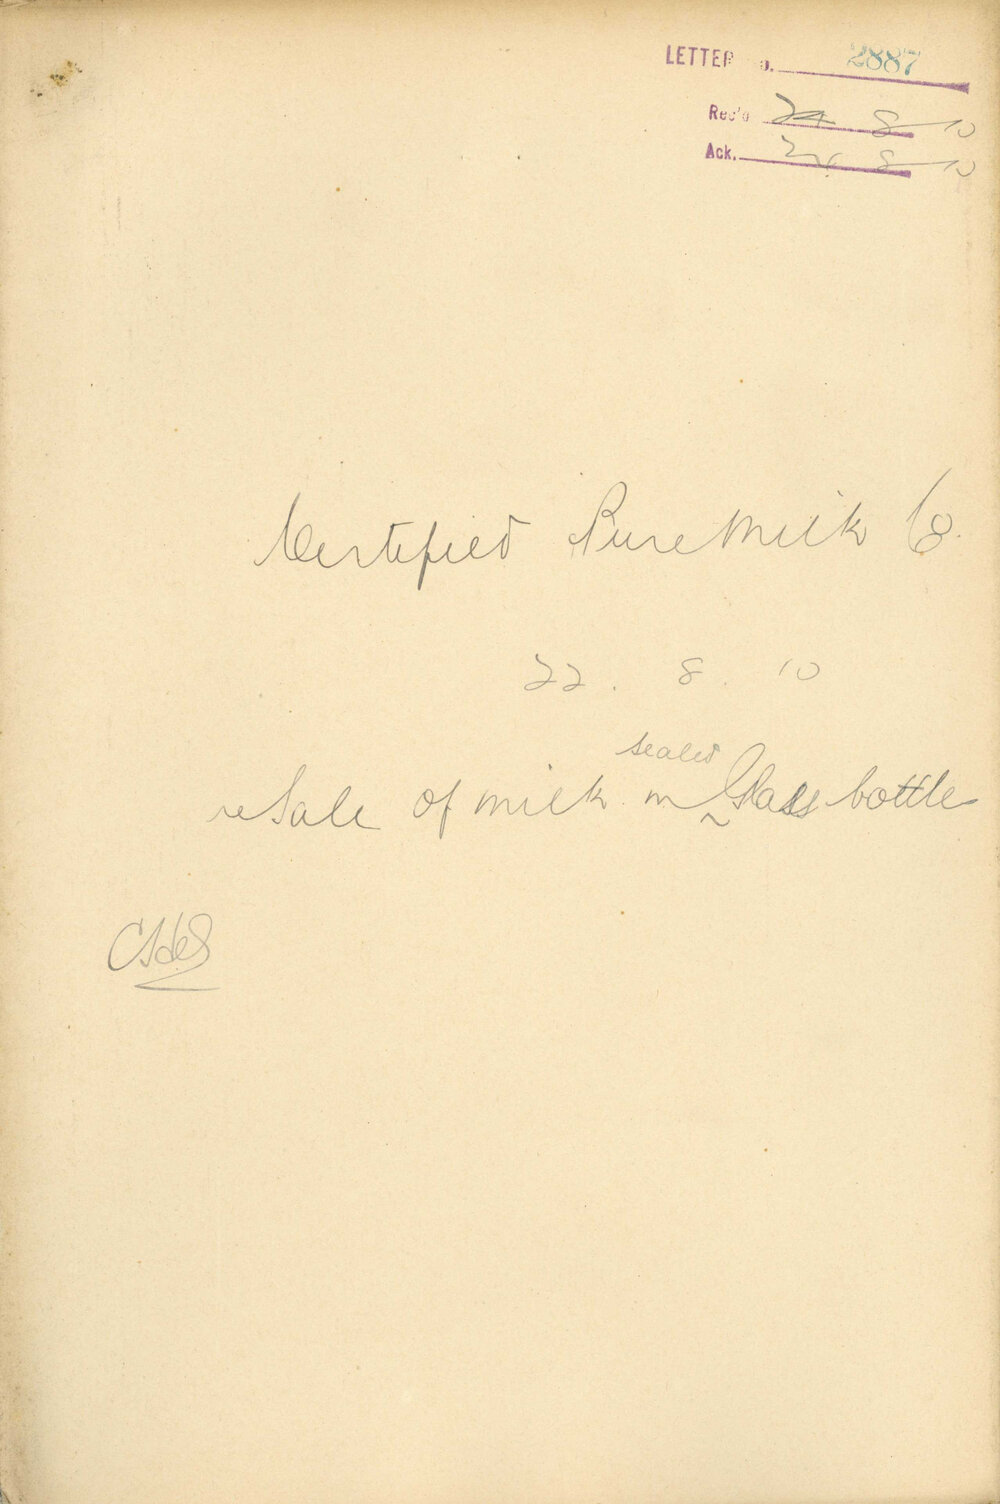 LETTER No. 2887
Rec'd 24 8 10
Ack. 24 8 10
Certified Pure Milk Co.
22. 8. 10
sealed
re Sale of milk in Glass bottles